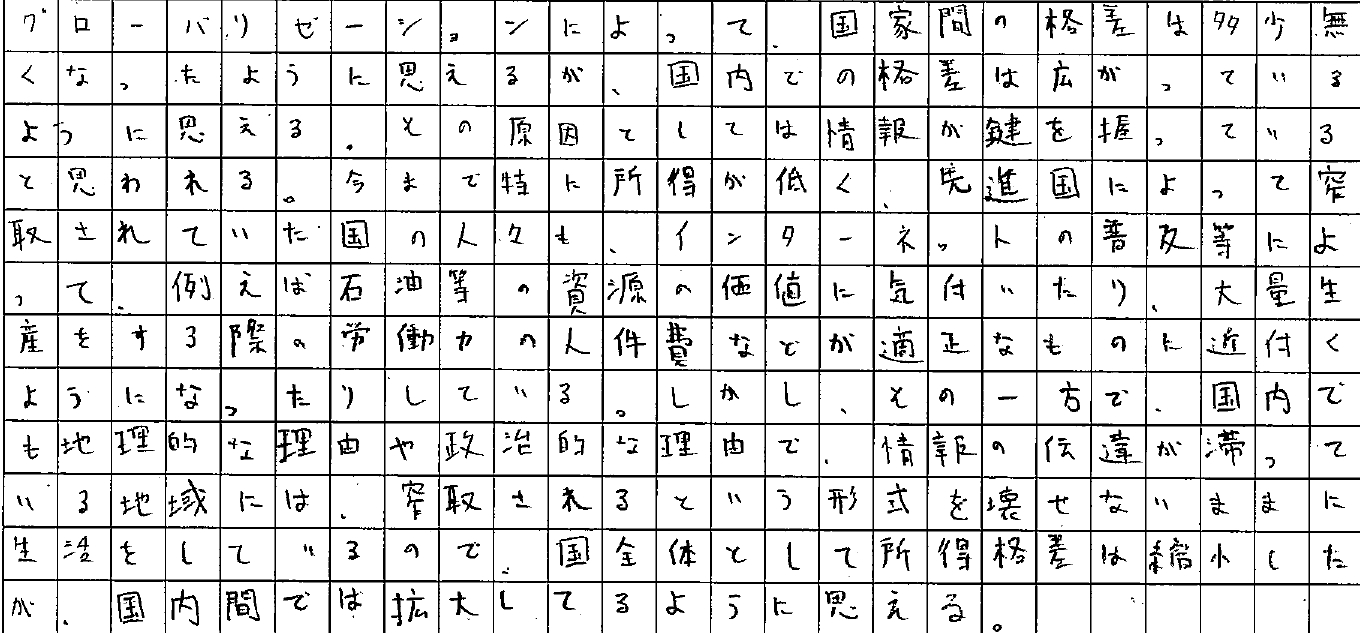 グローバリゼーションによって、国家間の格差は多少無
くなったように思えるが、国内での格差は広がっている
ように思える。その原因としては情報が鍵を握っている
と思われる。今まで特に所得が低く、先進国によって窄
取されていた国の人々も、インターネットの普及等によ
って、例えば石油等の資源の価値に気付いたり、大量生
産をする際の労働力の人件費などが適正なものに近付く
ようになったりしている。しかし、その一方で、国内で
も地理的な理由や政治的な理由で、情報の伝達が滞って
いる地域には、窄取されるという形式を壊せないままに
生活をしているので、国全体として所得格差は縮小した
が、国内間では拡大してるように思える。